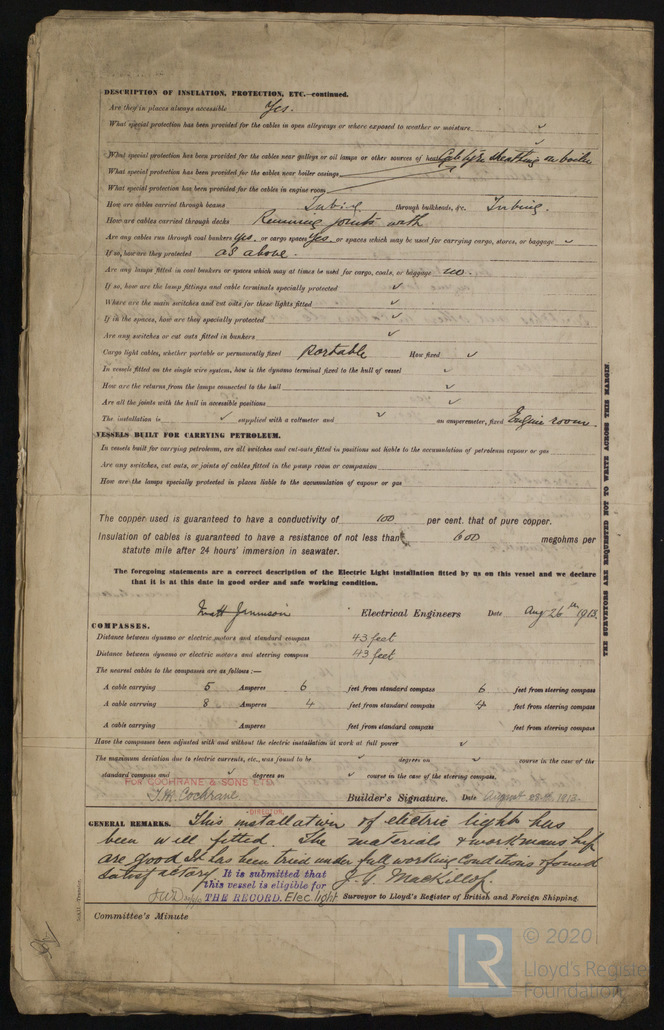 DESCRIPTION OF INSULATION, PROTECTION, ETC.—continued.
Are they in places always accessible Yes.
What special protection has been provided for the cables in open alleyways or where exposed to weather or moisture ✓
What special protection has been provided for the cables near galleys or oil lamps or other sources of heat sheathing on boiler
What special protection has been provided for the cables near boiler casings
What special protection has been provided for the cables in engine room
How are cables carried through beams Tubing through bulkheads, &c. Tubing.
How are cables carried through decks Running joints with
Are any cables run through coal bunkers Yes. or cargo spaces Yes. or spaces which may be used for carrying cargo, stores, or baggage ✓
If so, how are they protected as above.
Are any lamps fitted in coal bunkers or spaces which may at times be used for cargo, coals, or baggage no.
If so, how are the lamp fittings and cable terminals specially protected ✓
Where are the main switches and cut outs for these lights fitted ✓
If in the spaces, how are they specially protected ✓
Are any switches or cut outs fitted in bunkers ✓
Cargo light cables, whether portable or permanently fixed Portable How fixed ✓
In vessels fitted on the single wire system, how is the dynamo terminal fixed to the hull of vessel ✓
How are the returns from the lamps connected to the hull ✓
Are all the joints with the hull in accessible positions ✓
The installation is ✓ supplied with a voltmeter and ✓ an amperemeter, fixed Engine room.
VESSELS BUILT FOR CARRYING PETROLEUM.
In vessels built for carrying petroleum, are all switches and cut-outs fitted in positions not liable to the accumulation of petroleum vapour or gas
Are any switches, cut outs, or joints of cables fitted in the pump room or companion
How are the lamps specially protected in places liable to the accumulation of vapour or gas
The copper used is guaranteed to have a conductivity of 100 per cent. that of pure copper.
Insulation of cables is guaranteed to have a resistance of not less than 600 megohms per
statute mile after 24 hours' immersion in seawater.
The foregoing statements are a correct description of the Electric Light installation fitted by us on this vessel and we declare
that it is at this date in good order and safe working condition.
Electrical Engineers Date Aug 26th 1913.
COMPASSES.
Distance between dynamo or electric motors and standard compass 43 feet
Distance between dynamo or electric motors and steering compass 43 feet
The nearest cables to the compasses are as follows:—
A cable carrying 5 Amperes 6 feet from standard compass 6 feet from steering compass
A cable carrying 8 Amperes 4 feet from standard compass 4 feet from steering compass
A cable carrying Amperes feet from standard compass feet from steering compass
Have the compasses been adjusted with and without the electric installation at work at full power ✓
The maximum deviation due to electric currents, etc., was found to be ✓ degrees on ✓ course in the case of the
standard compass and ✓ degrees on ✓ course in the case of the steering compass.
FOR COCHRANE & SONS LTD.
Cochrane Builder's Signature. Date August 28th 1913.
DIRECTOR.
GENERAL REMARKS. This installation of electric light has
been well fitted. The materials & workmanship
are good It has been tried under full working Conditions & found
satisfactory. It is submitted that
this vessel is eligible for J. G. Mackillop.
THE RECORD. Elec. light Surveyor to Lloyd's Register of British and Foreign Shipping.
Committee's Minute
THE SURVEYORS ARE REQUESTED NOT TO WRITE ACROSS THIS MARGIN.
LR © 2020
Lloyd's Register
Foundation